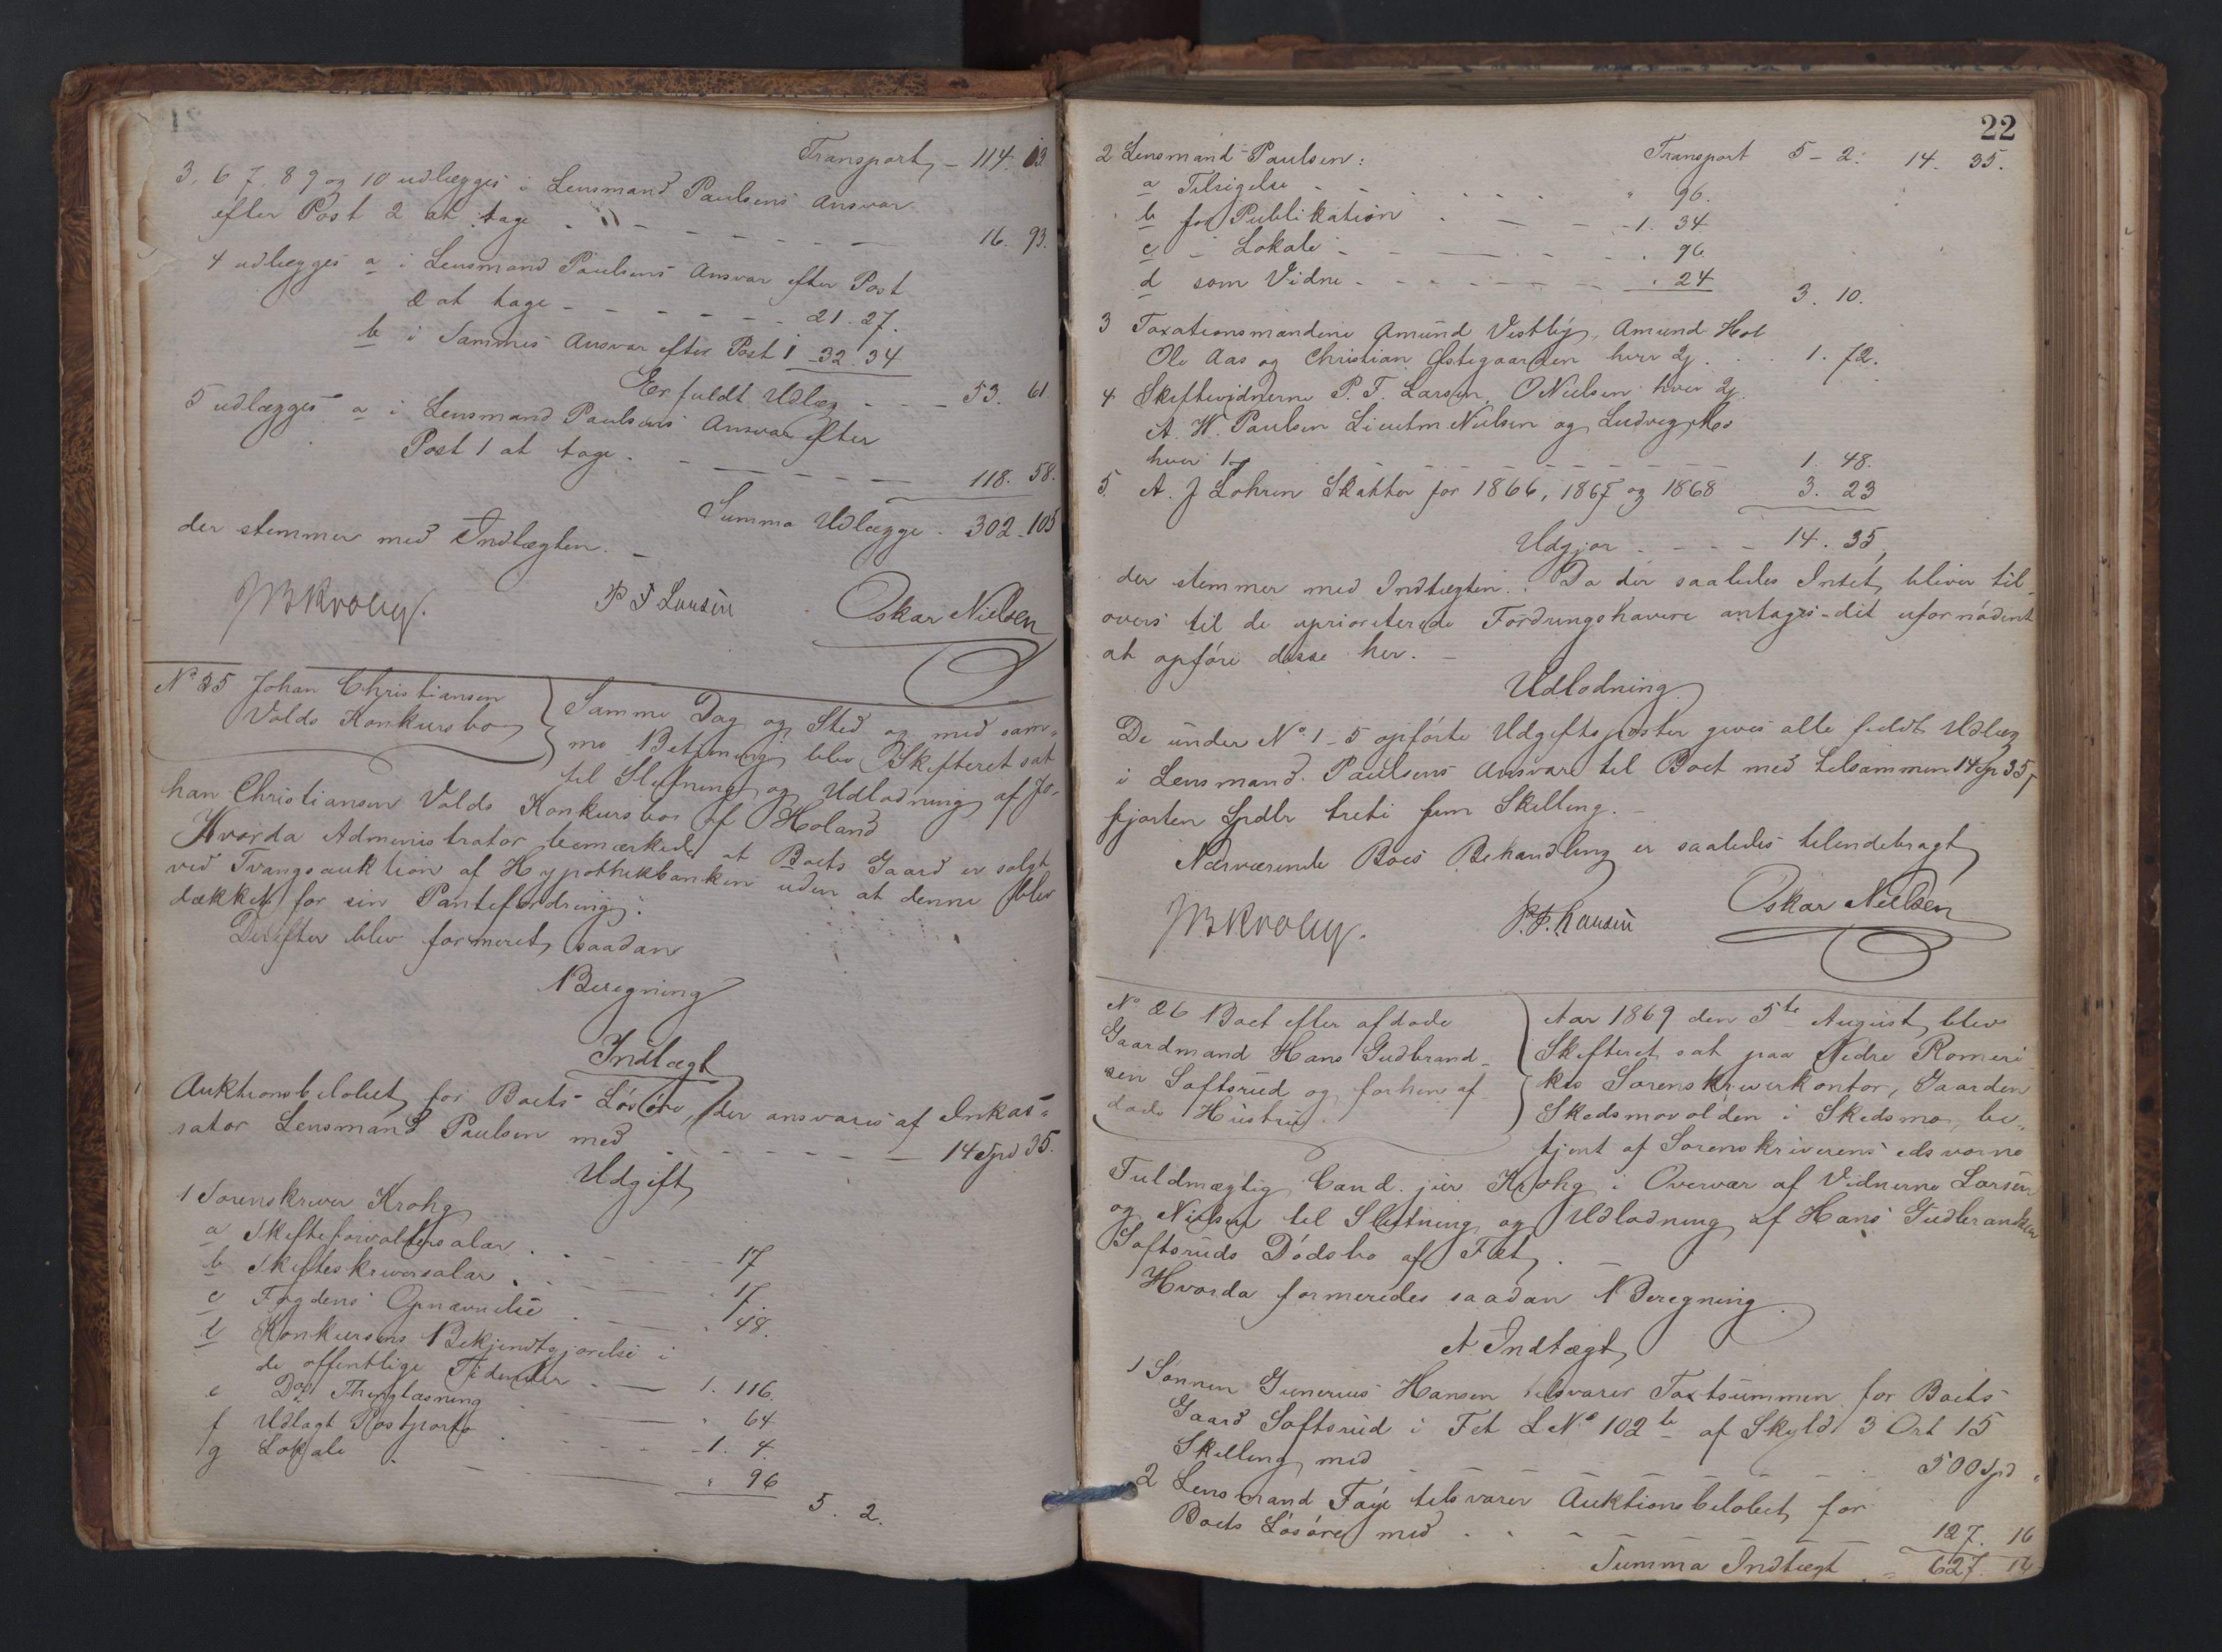 Transport - 114.
3, 6 7. 8 9 og 10 udlægges i Lensmand Paulsens Ansvar
efter Post 2 at tage - - - - - - 16. 93.
4 udlægges a i Lensmand Paulsens Ansvar efter Post
2 at tage - - - - - - 21. 27.
b i Sammes Ansvar efter Post 1 - 32. 34
Er fuldt Udlæg - - - 53. 61
5 udlægges a i Lensmand Paulsens Ansvar efter
Post 1 at tage - - - - - 118. 58.
Summa Udlægge . 302. 105
der stemmer med Indtægten. -
P F Larsen Oskar Nielsen
No 25 Johan Christiansen
Volds Konkursbo
Samme Dag og Sted og med sam-
me Betjening blev Skifteret sat
til Slutning og Udlodning af Jo-
han Christiansen Volds Konkursbo af Høland
Hvorda Administrator bemærkede at Boets Gaard er solgt
ved Tvangsauktion af Hypothekbanken uden at denne blev
dækket for sin Pantefordring.
Derefter blev formeret saadan
Beregning
Indtægt
1 Auktionsbeløbet for Boets Løsøre, der ansvares af Inkas-
sator Lensmand Paulsen med - - - - - 14 Spd 35.
Udgift
1 Sorenskriver Krohg
a Skifteforvaltersalær . - - - 17
b Skifteskriversalær . - - - 17.
c Fogdens Opnævnelse . - - 48.
d Konkursens Bekjendtgjørelse i
de offentlige Tidender - - 1. 116.
e Do Thinglæsning - - - 64
f Udlagt Postporto . - - - 1. 4.
g Lokale . - - - " 96
5. 2.
22
2 Lensmand Paulsen: Transport 5 - 2. 14. 35.
a Tilsigelse - - - - - " 96.
b for Publikation . - - - 1. 34
c - Lokale - - - - - . 96.
d som Vidne - - - - - . 24
3. 10.
3 Taxationsmændene Amund Vestby, Amund Hol
Ole Aas og Christian Østegaarden hver 2g. . . 1. 72.
4 Skiftevidnerne P. F. Larsen, O Nielsen hver 2g.
A. W. Paulsen Lieutn. Nielsen og Ludvig Moe
hver 1g - - - - - - 1. 48.
5. A. J Lohren Skatter for 1866, 1867 og 1868 3. 23
Udgjør . - - - 14. 35,
der stemmer med Indtægten. Da der saaledes Intet bliver til-
overs til de uprioriterede Fordringshavere antages det ufornødent
at opføre disse her. -
Udlodning
De under No 1 - 5 opførte Udgiftsposter gives alle fuldt Udlæg
i Lensmand Paulsens Ansvar til Boet med tilsammen 14 Sp 35,
fjorten Spdlr treti fem Skilling. -
Nærværende Boes Behandling er saaledes tilendebragt
P. F. Larsen Oskar Nielsen
No 26 Boet efter afdøde
Gaardmand Hans Gudbrand-
sen Loftsrud og forhen af-
døde Hustru
Aar 1869 den 5te August blev
Skifteret sat paa Nedre Romeri-
kes Sorenskriverkontor, Gaarden
Skedsmovolden i Skedsmo, be-
tjent af Sorenskriverens edsvorne
Fuldmægtig Cand. jur Krohg i Overvær af Vidnerne Larsen
og Nielsen til Slutning og Udlodning af Hans Gudbrandsen
Loftsruds Dødsbo af Fet. -
Hvorda formeredes saadan Beregning.
A. Indtægt
1 Sønnen Gunerius Hansen tilsvarer Taxtsummen for Boets
Gaard Loftsrud i Fet L No 102 b af Skyld 3 Ort 15
Skilling med - - - - - 500 Spd "
2 Lensmand Faye tilsvarer Auktionsbeløbet for
Boets Løsøre med . - - - 127. 16
Summa Indtægt - 627. 16